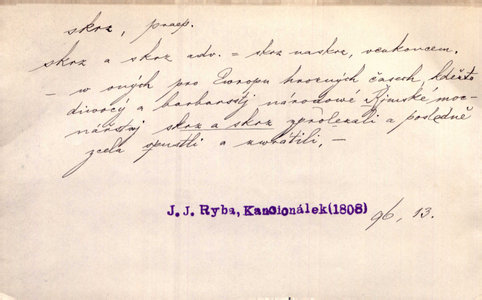 skrz, praep.
skrz a skrz adv. = skrz naskrz, veskrz
— w oných pro Europu hrozných časech, kdežto
diwocý a barbarsstj národowé Řjmské moc-
nářstwj skrz a skrz zprolezali a posledně
zcela spustli a zwrátili, —
J. J. Ryba, Kancionálek(1808) 96, 13.